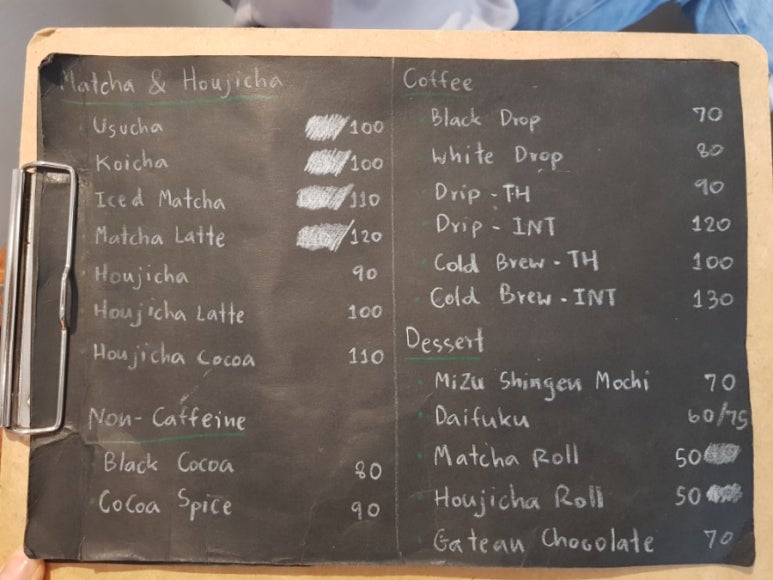 Matcha & Houjicha
Usucha /100
Koicha /100
Iced Matcha /110
Matcha Latte /120
Houjicha 90
Houjicha Latte 100
Houjicha Cocoa 110
Non-Caffeine
Black Cocoa 80
Cocoa Spice 90
Coffee
Black Drop 70
White Drop 80
Drip - TH 90
Drip - INT 120
Cold Brew - TH 100
Cold Brew - INT 130
Dessert
Mizu Shingen Mochi 70
Daifuku 60/75
Matcha Roll 50
Houjicha Roll 50
Gateau Chocolate 70